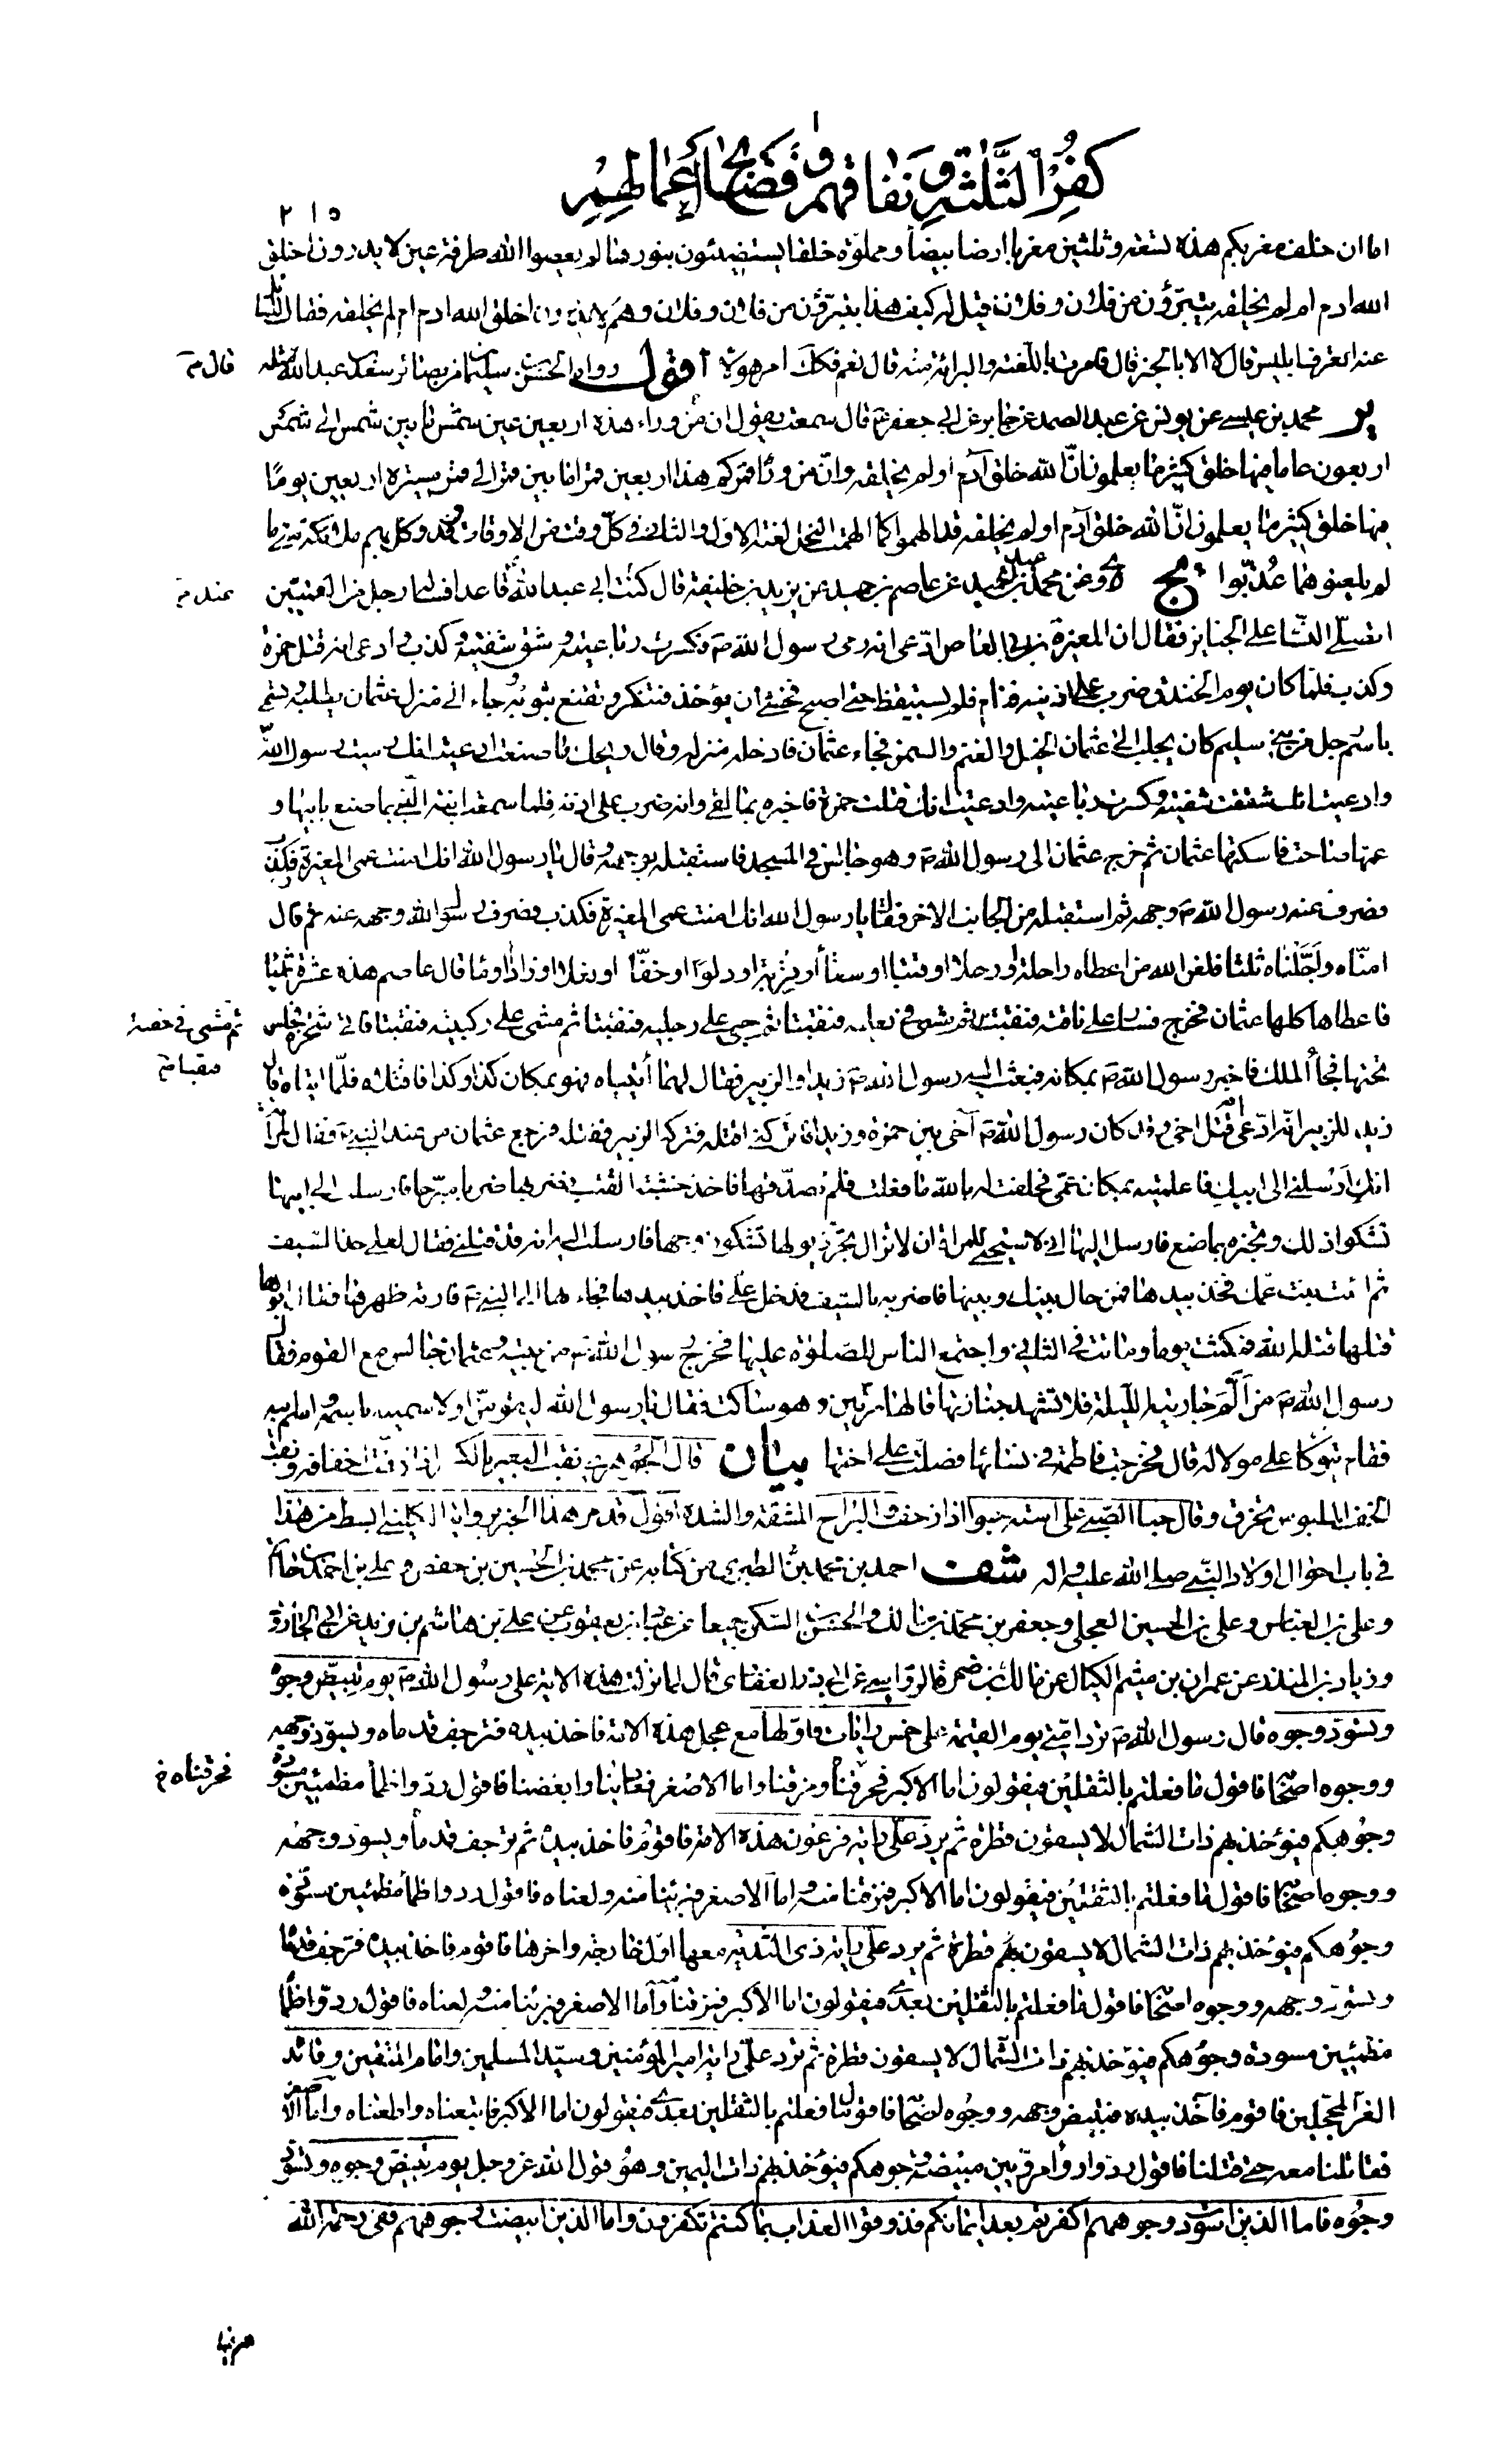 كفر الثلثة و نفاقهم و فضائح أعمالهم
٢١٥
اما ان خلف مغربكم هذه تسعة وثلثين مغربا ارضا بيضاء مملوة خلقا يستضيئون بنورها لم يعصوا الله طرفة عين لا يدرون اخلق
الله ادم ام لم يخلقه يتبرؤن من فلان وفلان قيل له كيف هذا يتبرؤن من فلان وفلان وهم لا يدرون اخلق الله ادم ام لم يخلقه فقال للسائل
عنه اتعرف ابليس قال لا الا بالخبر قال فامرت باللعنة والبراءة منه قال نعم فكذلك امر هؤلاء اقول رواه الحسن بن سليمان من بصائر سعد بن عبد الله مثله
ير محمد بن عيسى عن يونس عن عبد الصمد عن جابر عن ابي جعفر ع قال سمعته يقول ان من وراء هذه اربعين عين شمس ما بين شمس الى شمس
اربعون عاما فيها خلق كثير ما يعلمون ان الله خلق آدم او لم يخلقه وان من وراء قمركم هذا اربعين قمرا ما بين قمر الى قمر مسيرة اربعين يوما
فيها خلق كثير ما يعلمون ان الله خلق آدم او لم يخلقه قد الهموا كما الهمت النحل لعنة الاول والثاني في كل وقت من الاوقات وقد وكل بهم ملائكة متى ما
لم يلعنوهما عذبوا يج محمد بن عبد الحميد عن عاصم بن حميد عن يزيد بن خليفة قال كنت ابي عبد الله قاعدا فساله رجل من القميين
اتصلي النساء على الجنايز فقال ان المغيرة بن ابي العاص ادعى انه رمى رسول الله ص فكسرت رباعيته وشق شفتيه وكذب وادعى انه قتل حمزة
وكذب فلما كان يوم الخندق ضرب على اذنيه فنام فلم يستيقظ حتى اصبح فخشي ان يؤخذ فتنكر وتقنع بثوبه وجاء الى منزل عثمان يطلبه وتسمى
باسم رجل من بني سليم كان يجلب الى عثمان الخيل والغنم والسمن فجاء عثمان فادخله منزله وقال ويحك ما صنعت ادعيت انك رميت رسول الله
وادعيت انك شققت شفتيه وكسرت رباعيته وادعيت انك قتلت حمزة فاخبره بما لقي وانه ضرب على اذنه فلما سمعت ابنة النبي بما صنع بابيها و
عمها صاحت فاسكتها عثمان ثم خرج عثمان الى رسول الله ص وهو جالس في المسجد فاستقبله بوجهه وقال يا رسول الله انك امنت عمي المغيرة فكذب
فصرف عنه رسول الله ص وجهه ثم استقبله من الجانب الاخر فقال يا رسول الله انك امنت عمي المغيرة فكذب فصرف رسول الله وجهه عنه ثم قال
امناه واجلناه ثلثا فلعن الله من اعطاه راحلة او رحلا او قتبا او سقاء او قربة او دلوا او خفا او نعلا او زادا او ماء قال عاصم هذه عشرة اشياء
فاعطاها كلها عثمان فخرج فسار على ناقته فنقبت ثم مشى في نعليه فنقبتا ثم حبى على رجليه فنقبتا ثم مشى على ركبتيه فنقبتا فاتى شجرة فجلس
تحتها فجاء الملك فاخبر رسول الله ص بمكانه فبعث اليه رسول الله ص زيدا والزبير فقال لهما أتياه فهو بمكان كذا وكذا فاقتلاه فلما اتياه قال
زيد للزبير انه ادعى انه قتل اخي وقد كان رسول الله ص آخى بين حمزة وزيد فاتركني اقتله فتركه الزبير فقتله فرجع عثمان من عند النبي ص فقال للمرأة
انك ارسلت الى ابيك فاعلمتيه بمكان عمي فحلفت له بالله ما فعلت فلم يصدقها فاخذ خشبة القتب فضربها ضربا مبرحا فارسلت الى ابيها
تشكو اذلك وتخبره بما صنع فارسل اليها اني لاستحيي للمراة ان لا تزال تجر ذيولها تشكو زوجها فارسلت اليه انه قد قتلني فقال لعلي خذ السيف
ثم ائت بنت عمك فخذ بيدها فمن حال بينك وبينها فاضربه بالسيف فدخل علي فاخذ بيدها فجاء بها الى النبي ص فارته ظهرها فقال ابوها
قتلها قتله الله فمكثت يوما وماتت في الثاني واجتمع الناس للصلوة عليها فخرج رسول الله ص من بيته وعثمان جالس مع القوم فقال
رسول الله ص من الم جاريته الليلة فلا تشهد جنازتها قالها مرتين وهو ساكت فقال رسول الله ليقومن او لاسمينه باسمه واسم ابيه
فقام يتوكأ على مولى له قال فخرجت فاطمة في نسائها فصلت على اختها بيان قال الجوهري نقب البعير بالكسر اذا رقت اخفافه ونقب
الخف الملبوس تخرق وقال حبا الصبي على استه حبوا اذا زحف والبراح المشقة والشدة اقول قد مر هذا الخبر برواية الكليني ابسط من هذا
في باب احوال اولاد النبي صلى الله عليه واله شف احمد بن محمد الطبري من كتابه عن محمد بن الحسين بن حفص وعلي بن احمد بن حاتم
وعلي بن العباس وعلي بن الحسين العجلي وجعفر بن محمد بن مالك والحسن بن السكن جميعا عن عباد بن يعقوب عن علي بن هاشم بن زيد عن ابي الجارود
وزياد بن المنذر عن عمران بن ميثم الكيال عن مالك بن ضمرة الرواسي عن ابي ذر الغفاري قال لما نزلت هذه الاية على رسول الله ص يوم تبيض وجوه
وتسود وجوه قال رسول الله ص ترد امتي يوم القيمة على خمس رايات فاولها مع عجل هذه الامة فاخذ بيده فترجف قدماه ويسود وجهه
ووجوه اصحابه فاقول ما فعلتم بالثقلين فيقولون اما الاكبر فخرقنا ومزقنا واما الاصغر فعادينا وابغضنا فاقول ردوا ظماء مظمئين مسودة
وجوهكم فيؤخذ بهم ذات الشمال لا يسقون قطرة ثم يرد علي راية فرعون هذه الامة فاقوم فاخذ بيده ثم ترجف قدماه ويسود وجهه
ووجوه اصحابه فاقول ما فعلتم بالثقلين فيقولون اما الاكبر فمزقنا منه واما الاصغر فبرئنا منه ولعناه فاقول ردوا ظماء مظمئين مسودة
وجوهكم فيؤخذ بهم ذات الشمال لا يسقون قطرة ثم يرد علي راية ذي الثدية معها اول خارجة واخرها فاقوم فاخذ بيده فترجف قدماه
ويسود وجهه ووجوه اصحابه فاقول ما فعلتم بالثقلين بعدي فيقولون اما الاكبر فمزقنا واما الاصغر فبرئنا منه ولعناه فاقول ردوا ظماء
مظمئين مسودة وجوهكم فيؤخذ بهم ذات الشمال لا يسقون قطرة ثم ترد علي راية امير المؤمنين وسيد المسلمين وامام المتقين وقائد
الغر المحجلين فاقوم فآخذ بيده فيبيض وجهه ووجوه اصحابه فاقول ما فعلتم بالثقلين بعدي فيقولون اما الاكبر فاتبعناه واطعناه واما الاصغر
فقاتلنا معه حتى قتلنا فاقول ردوا رواء مرويين مبيضة وجوهكم فيؤخذ بهم ذات اليمين وهو قول الله عز وجل يوم تبيض وجوه وتسود
وجوه فاما الذين اسودت وجوههم اكفرتم بعد ايمانكم فذوقوا العذاب بما كنتم تكفرون واما الذين ابيضت وجوههم ففي رحمة الله
قال
عند
ثم مشى في خفيه
فنقبا
فحرقناه
هم فيها